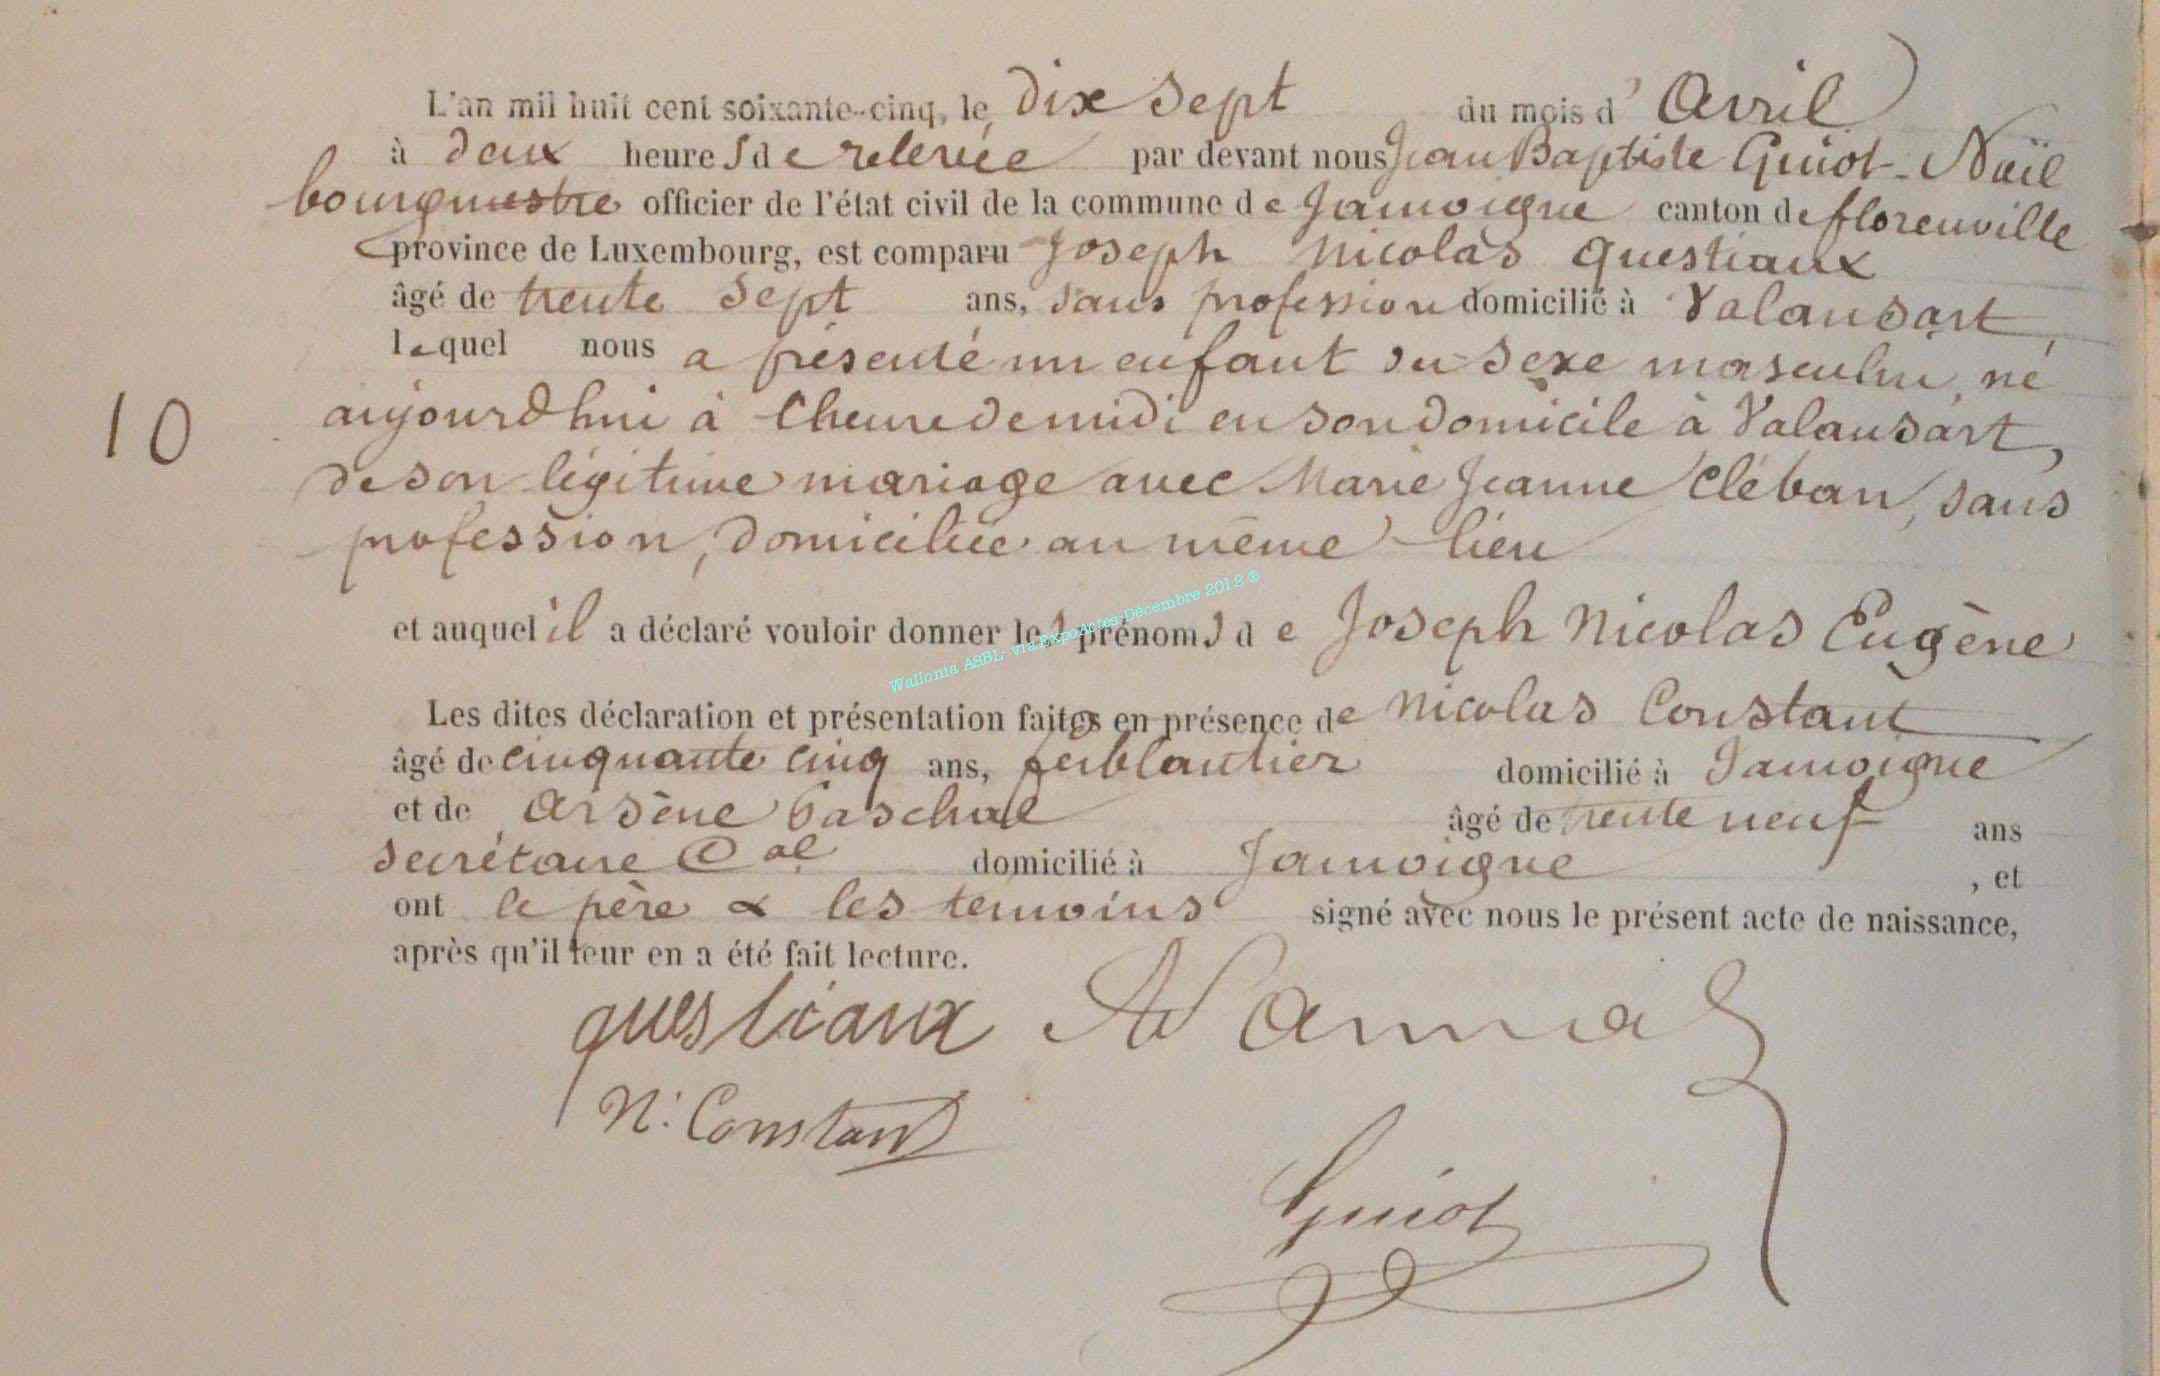 L'an mil huit cent soixante-cinq, le dix sept du mois d'Avril
à deux heures de relevée par devant nous Jean Baptiste Guiot-Naïl
bourgmestre officier de l'état civil de la commune de Jamoigne canton de florenville
province de Luxembourg, est comparu Joseph Nicolas Questiaux
âgé de trente sept ans, sans profession domicilié à Valansart,
lequel nous a présenté un enfant du sexe masculin, né
aujourdhui à l'heure de midi en son domicile à Valansart,
de son légitime mariage avec Marie Jeanne Cléban, sans
profession, domiciliée au même lieu
10
et auquel il a déclaré vouloir donner les prénoms de Joseph Nicolas Eugène
Wallonia ASBL- via ExpoActes-Décembre 2018 ®
Les dites déclaration et présentation faites en présence de Nicolas Constant
âgé de cinquante cinq ans, ferblantier domicilié à Jamoigne
et de Arsène Paschal âgé de trente neuf ans
secrétaire Cal domicilié à Jamoigne, et
ont le père & les témoins signé avec nous le présent acte de naissance,
après qu'il leur en a été fait lecture.
questiaux
N. Constant
Guiot